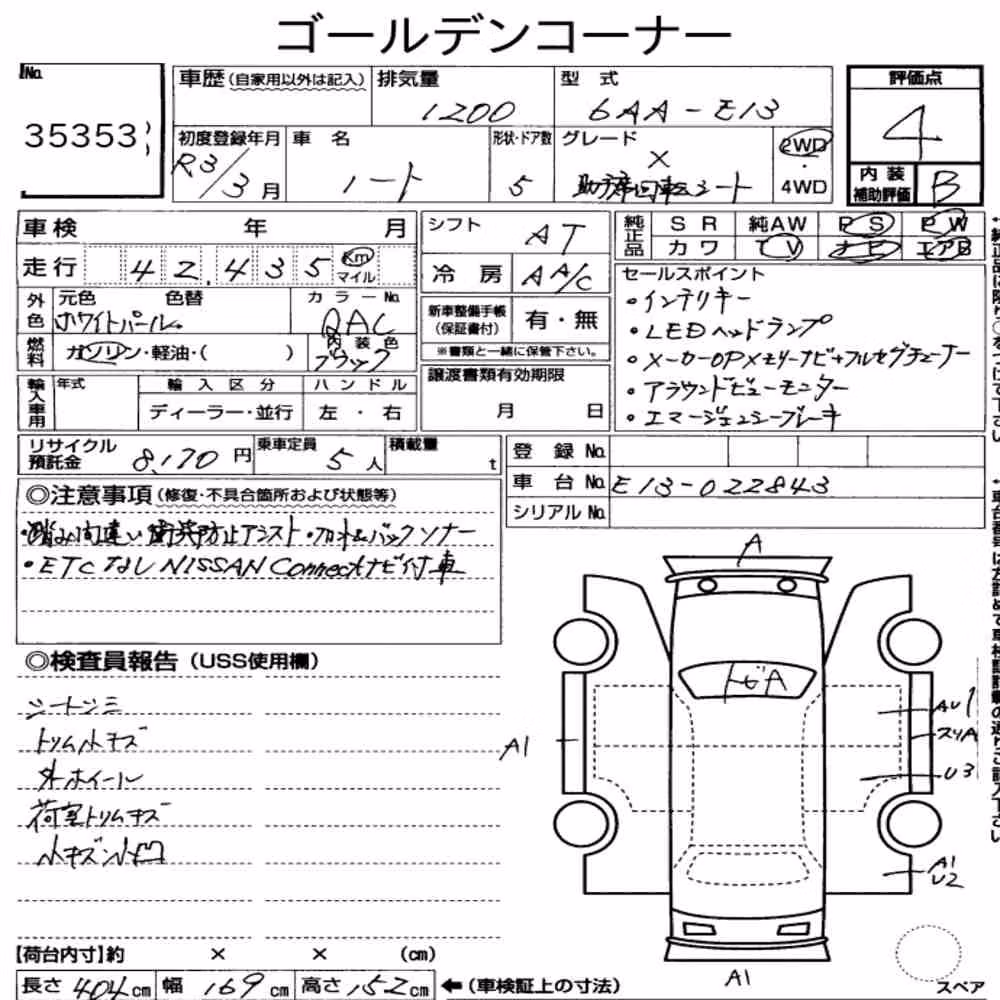 ゴールデンコーナー
No.
35353
車歴（自家用以外は記入）
排気量
1200
型 式
6AA-E13
評価点
4
初度登録年月
R3/3月
車 名
ノート
形状・ドア数
5
グレード
X
助手席回転シート
2WD
・
4WD
内装
補助評価
B
車検 年 月
シフト
AT
純正品
SR 純AW PS PW
カワ TV ナビ エアB
走行
42,435
Km
マイル
冷房
AA/C
セールスポイント
・インテリキー
・LEDヘッドランプ
・メーカーOPメモリーナビ+フルセグチューナー
・アラウンドビューモニター
・エマージェンシーブレーキ
外色
元色 色替
ホワイトパール
カラーNo.
QAC
新車整備手帳
（保証書付）
有・無
※書類と一緒に保管下さい。
燃料
ガソリン・軽油・（ ）
内装色
ブラック
輸入車用
年式
輸入区分
ハンドル
ディーラー・並行
左・右
譲渡書類有効期限
月 日
リサイクル
預託金
8,170円
乗車定員
5人
積載量
t
登録No.
車台No.
E13-022843
シリアルNo.
◎注意事項（修復・不具合箇所および状態等）
・踏み間違い衝突防止アシスト・フロント&バックソナー
・ETCなし NISSAN Connectナビ付車
◎検査員報告（USS使用欄）
シートシミ
トリム小キズ
外ホイール
荷室トリムキズ
小キズ小凹
A
トビA
A1
AU1
スリA
U3
A1
U2
A1
スペア
【荷台内寸】約 × × （cm）
長さ 404cm 幅 169cm 高さ 152cm ←（車検証上の寸法）